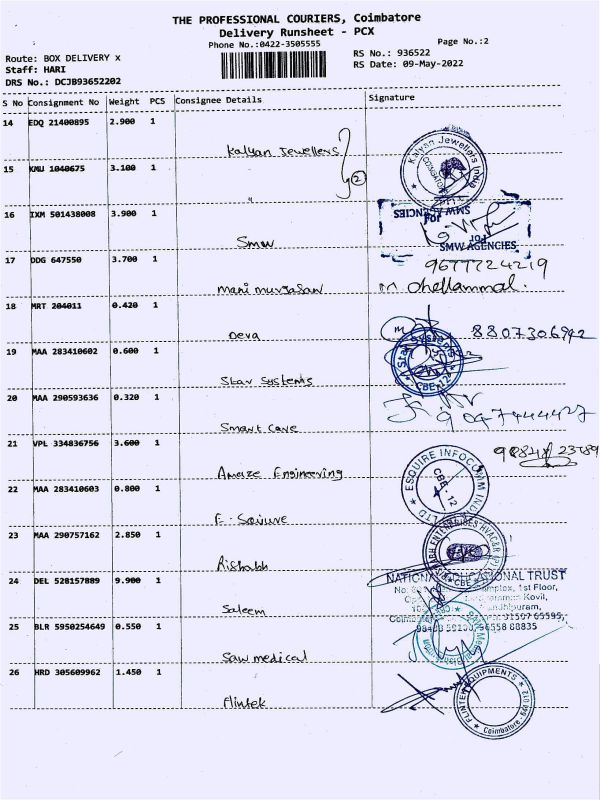 THE PROFESSIONAL COURIERS, Coimbatore
Delivery Runsheet - PCX
Phone No.:0422-3505555
Page No.:2
Route: BOX DELIVERY x
RS No.: 936522
Staff: HARI
RS Date: 09-May-2022
DRS No.: DCJB93652202
S No Consignment No Weight PCS Consignee Details Signature
14 EDQ 21400895 2.900 1
Kalyan Jewellers
Kalyan Jewellers India
15 KMU 1040675 3.100 1
2
"
16 IXM 501438008 3.900 1
SMW AGENCIES
For
Smw
For
SMW AGENCIES
17 DDG 647550 3.700 1
9677724219
Mani murgasan
m chellammal.
18 MRT 204011 0.420 1
Deva
8807306942
19 MAA 283410602 0.600 1
A Star Systems
CBE-12
Star Systems
20 MAA 290593636 0.320 1
Smart Care
9047444427
21 VPL 334836756 3.600 1
Amaze Engineering
22 MAA 283410603 0.800 1
ESQUIRE INFOCOMM IND LTD
CBE. 12
E. Squure
23 MAA 290757162 2.850 1
ENTERPRISES HVAC&R
CBE
Rishabh
24 DEL 528157889 9.900 1
NATIONAL EDUCATIONAL TRUST
No. Complex, 1st Floor,
Kovil,
Gandhipuram,
Saleem
25 BLR 5950254649 0.550 1
98438 59130, 96558 88835
Saw medical
26 HRD 305609962 1.450 1
FLINTEK EQUIPMENTS
Coimbatore - 641 012
Flintek